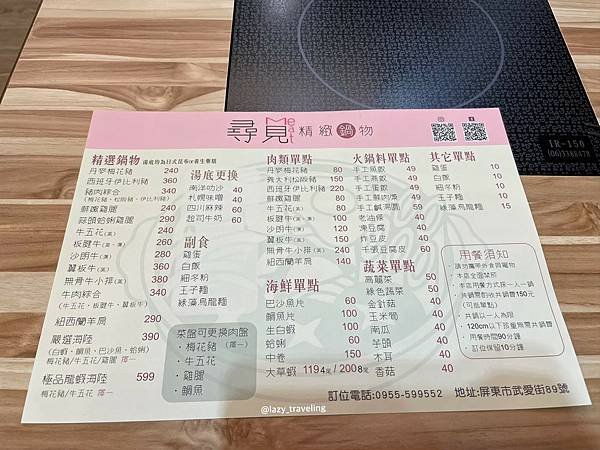 尋見Meat精緻鍋物
IR-150
精選鍋物 湯底均為日式昆布or養生藥膳
丹麥梅花豬 240
西班牙伊比利豬 360
豬肉綜合 340
(梅花豬、松阪豬、伊比利豬)
鮮嫩雞腿 240
蒜頭蛤蜊雞腿 290
牛五花(美) 240
板腱牛(美、澳) 260
沙朗牛(美) 260
翼板牛(美) 360
無骨牛小排(美) 380
牛肉綜合 340
(牛五花、板腱牛、翼板牛)
紐西蘭羊肩 290
嚴選海陸 390
(白蝦、鯛魚、巴沙魚、蛤蜊)
梅花豬/牛五花/雞腿 擇一
極品龍蝦海陸 599
梅花豬/牛五花 擇一
湯底更換
南洋叻沙 40
札幌味噌 40
四川麻辣 60
起司牛奶 60
副食
雞蛋
白飯
細冬粉
王子麵
綠藻烏龍麵
菜盤可更換肉盤
·梅花豬 (擇一)
·牛五花
·雞腿
·鯛魚
肉類單點
丹麥梅花豬 80
義大利松阪豬 150
西班牙伊比利豬 220
鮮嫩雞腿 80
牛五花(美) 80
板腱牛(美、澳)
沙朗牛(美)
翼板牛(美)
無骨牛小排(美) 240
紐西蘭羊肩
海鮮單點
巴沙魚片 60
鯛魚片 100
生白蝦
蛤蜊 60
中卷 150
大草蝦 119 4尾/200 8尾
火鍋料單點
手工魚餃 49
手工燕餃 49
手工蛋餃 49
手工鮮肉漿 49
手工鹹湯圓 59
老油條
凍豆腐
炸豆皮
千張豆腐皮 60
蔬菜單點
高麗菜 50
綠色蔬菜 50
金針菇 40
玉米筍 40
南瓜 40
芋頭 40
木耳 40
香菇 40
其它單點
雞蛋 10
白飯 10
細冬粉 10
王子麵 10
綠藻烏龍麵 15
用餐須知
·請勿攜帶外食與寵物
·本店全面禁菸
·本店用餐方式為一人一鍋
·共鍋需酌收共鍋費150元
(可抵單點)
·共鍋以一人為限
·120cm以下孩童無需共鍋費
·用餐時間90分鐘
·訂位保留10分鐘
訂位電話:0955-599552 地址:屏東市武愛街89號
@lazy_traveling